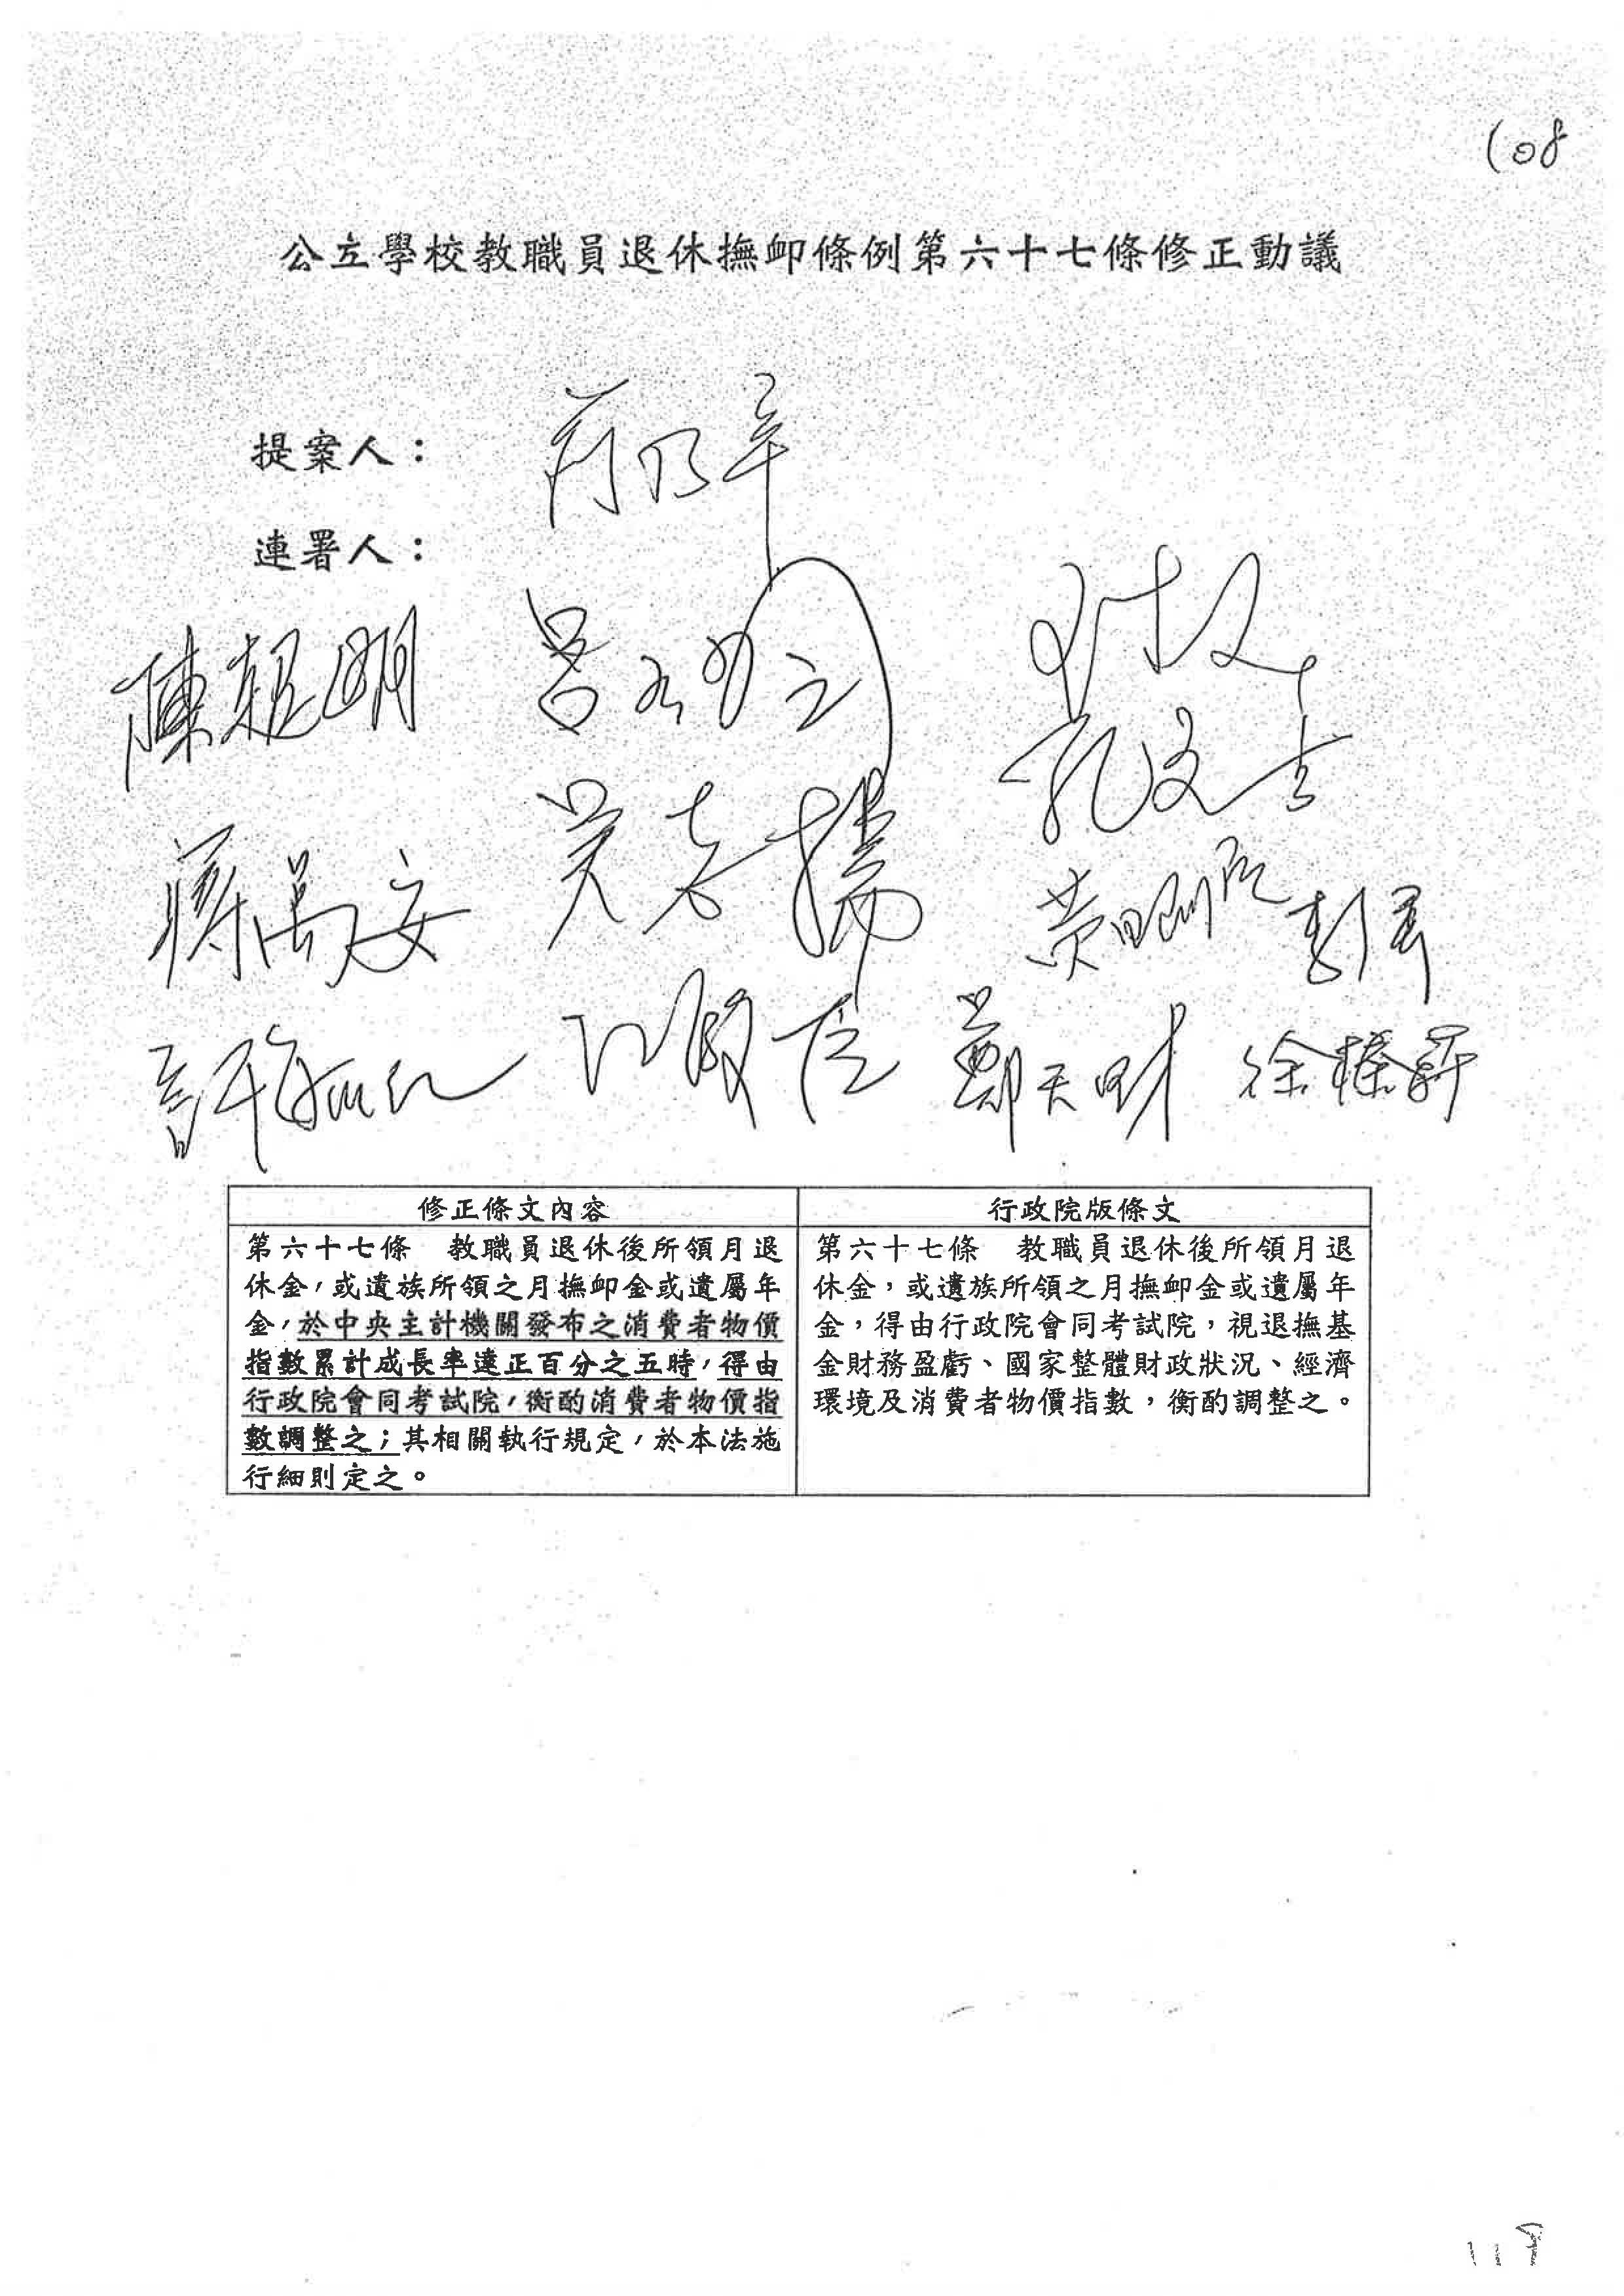 108
公立學校教職員退休撫卹條例第六十七條修正動議
提案人：
連署人：
陳超明
呂玉玲
孔文吉
蔣萬安
吳志揚
黃昭順
許毓仁
江啟臣
鄭天財
徐榛蔚
修正條文內容
第六十七條　教職員退休後所領月退
休金，或遺族所領之月撫卹金或遺屬年
金，於中央主計機關發布之消費者物價
指數累計成長率達正百分之五時，得由
行政院會同考試院，衡酌消費者物價指
數調整之；其相關執行規定，於本法施
行細則定之。
行政院版條文
第六十七條　教職員退休後所領月退
休金，或遺族所領之月撫卹金或遺屬年
金，得由行政院會同考試院，視退撫基
金財務盈虧、國家整體財政狀況、經濟
環境及消費者物價指數，衡酌調整之。